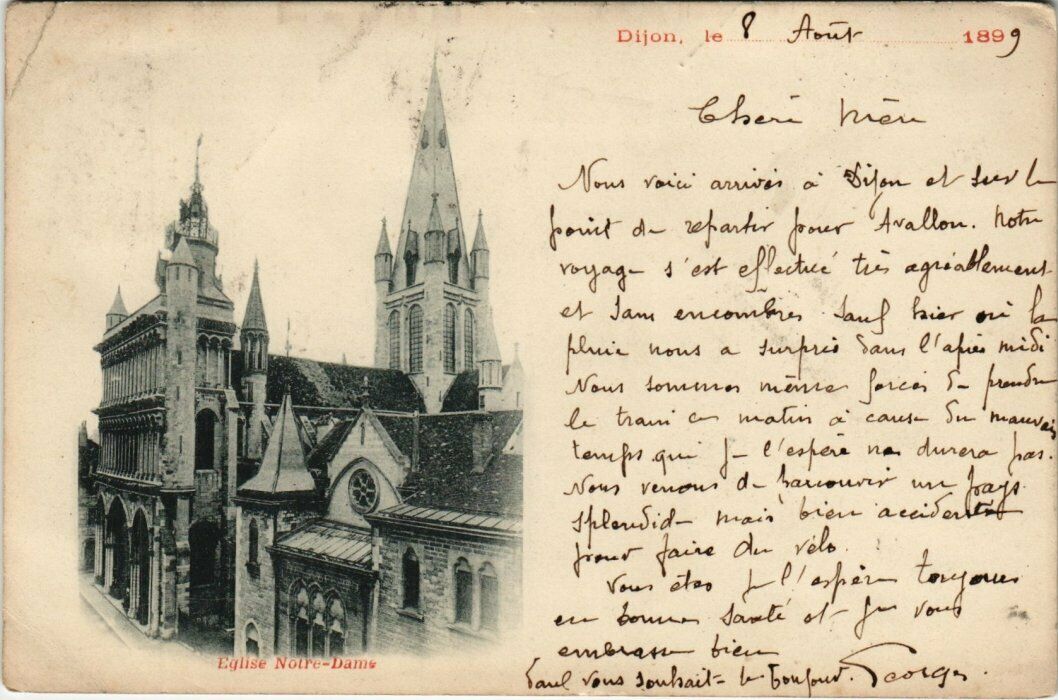 Dijon, le 8 Août 1899
Chère Mère
Nous voici arrivés à Dijon et sur le
point de repartir pour Avallon. Notre
voyage s'est effectué très agréablement
et sans encombres sauf hier où la
pluie nous a surpris dans l'après midi
Nous sommes même forcés de prendre
le train ce matin à cause du mauvais
temps qui je l'espère ne durera pas.
Nous venons de parcourir un pays
splendide mais bien accidenté
pour faire du vélo.
Vous êtes je l'espère toujours
en bonne santé et je vous
embrasse bien
Paul vous souhait le bonjour. Georges.
Eglise Notre-Dame